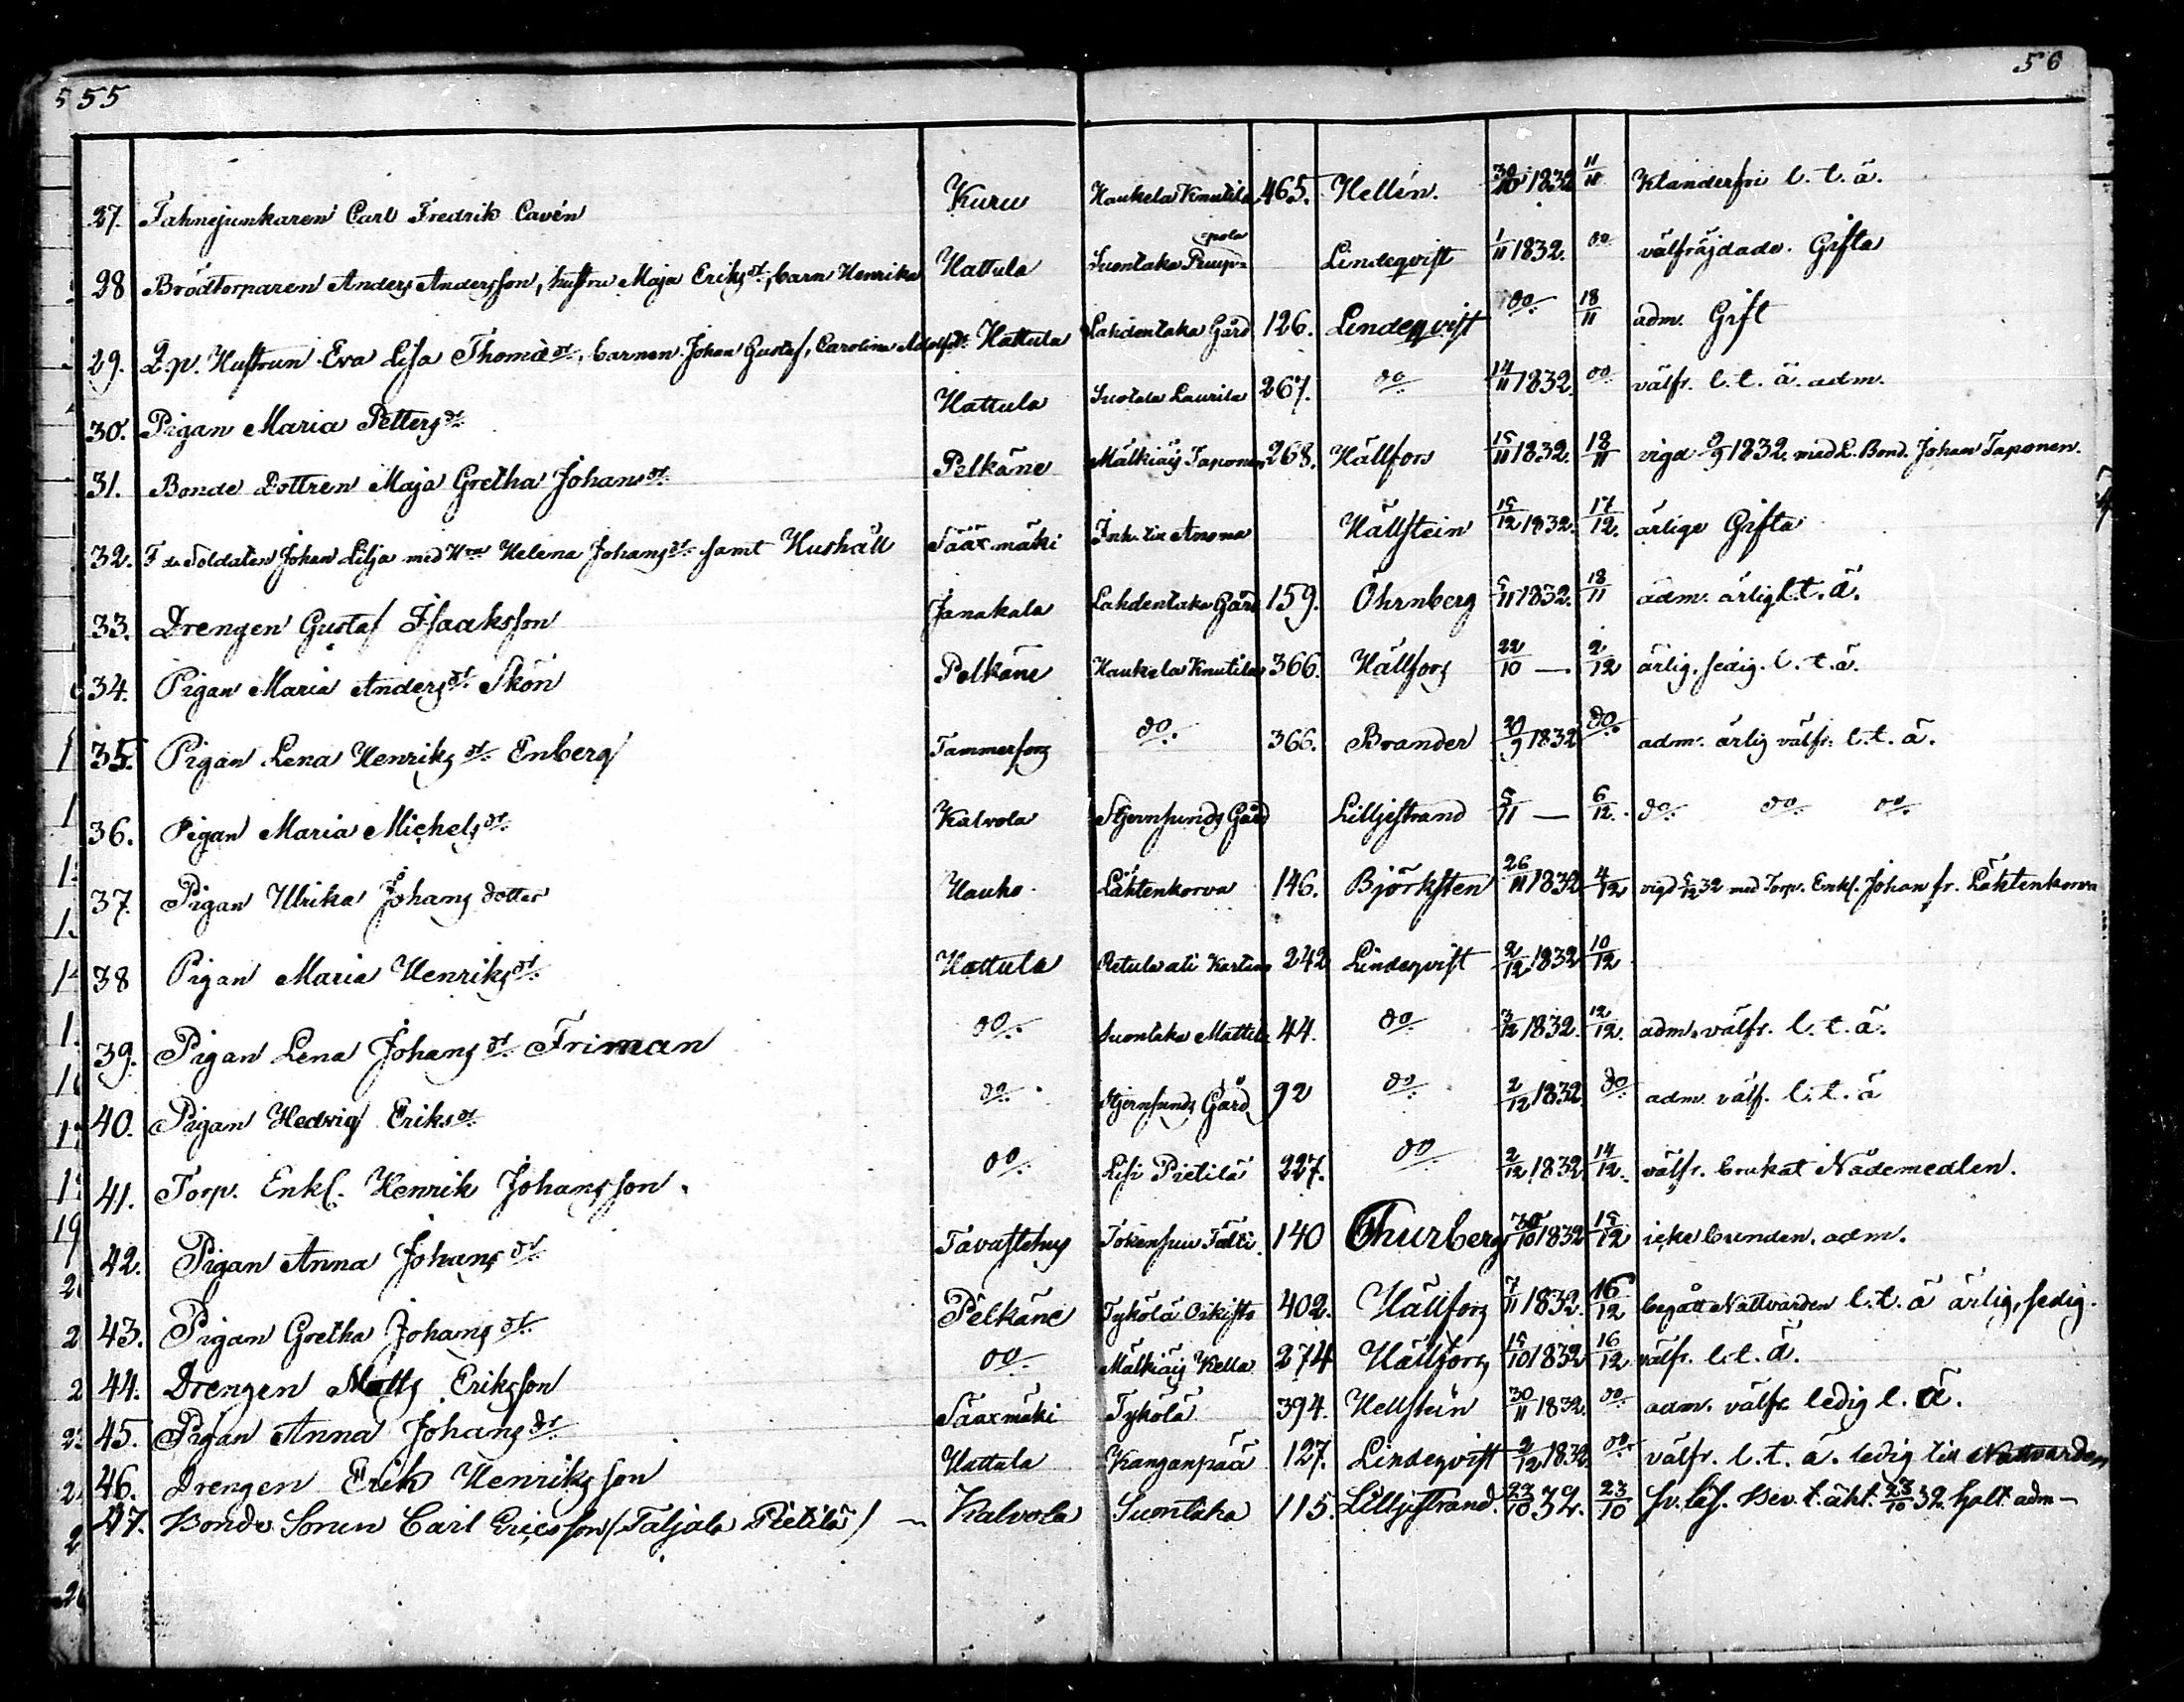 55
56
27. Fahnejunkaren Carl Fredrik Cavén Kuru Haukela Knutila 465. Hellén. 30/10 1832 11/11 Klanderfri l. t. ä.
28 Brödtorparen Anders Andersson, hustru Maja Eriks dr, barn Henrika Hattula Suontaka Lindeqvist 1/11 1832. do välfräjdade. Gifta
29. Hustrun Eva Lisa Thomæ dr, barnen Johan Gustaf, Carolina Hattula Lahdentaka Gård 126. Lindeqvist do 18/11 adm. Gift
30. Pigan Maria Petters dr Hattula Suotala Laurila 267. do 14/11 1832. do välfr. l. t. ä. adm.
31. Bonde Dottren Maja Gretha Johans dr Pelkäne Mälkiäis Taponen 268. Hällfors 15/11 1832. 18/11 vigd 9/9 1832. med L. Bond. Johan Taponen.
32. F de Soldaten Johan Lilja med H:un Helena Johans dr samt Hushåll Sääxmäki Hällstein 15/12 1832. 17/12. ärliga Gifta
33. Drengen Gustaf Isaaksson Janakala Lahdentaka Gård 159. Öhrnberg 5/11 1832. 18/11 adm. ärlig l.t. ä.
34. Pigan Maria Anders dr Skön Pelkäne Haukela Knutila 366. Hällfors 22/10 — 2/12 ärlig. sedig. l. t. ä.
35. Pigan Lena Henriks dr Enberg Tammerfors do. 366. Brander 20/9 1832 do. adm. ärlig välfr. l. t. ä.
36. Pigan Maria Michels dr Kalvola Stjernsunds Gård Lilljestrand 5/11 — 6/12. do do do
37. Pigan Ulrika Johans dotter Hauho Lähtenkorva 146. Björksten 26/11 1832 4/12 vigd 5/12 32 med Torp. Enkl. Johan fr. Lähtenkorva
38 Pigan Maria Henriks dr Hattula Retula 242 Lindeqvist 2/12 1832 10/12
39. Pigan Lena Johans dr Friman do. Suontaka Mattila 44. do 3/12 1832. 12/12. adm. välfr. l. t. ä.
40. Pigan Hedvig Eriks dr do. Stjernsunds Gård 92 do 2/12 1832 do adm. välf. l. t. ä
41. Torp. Enkl. Henrik Johansson. do. Lisi Pietilä 227. do 2/12 1832 14/12. välfr. brukat Nådemedlen.
42. Pigan Anna Johans dr Tavastehus 140 Thurberg 30/10 1832 15/12 icke bunden. adm.
43. Pigan Gretha Johans dr Pelkäne Tykölä 402. Hällfors 7/11 1832. 16/12 begått Nattvarden l. t. ä ärlig, sedig.
44. Drengen Matts Eriksson do. Mälkiäis Kella 274 Hällfors 15/10 1832 16/12. välfr. l. t. ä.
45. Pigan Anna Johans dr Sääxmäki Tykölä 394. Hellstein 30/11 1832. do adm. välfr. ledig l. ä.
46. Drengen Erik Henriksson Hattula Kanganpää 127. Lindeqvist 2/12 1832. do. välfr. l. t. ä. ledig till Nattvarden
47. Bonde Sonen Carl Ericsson (Taljala Pietilä) Kalvola Suontaka 115. Lilljestrand. 23/10 32. 23/10 Bev. t. äkt. 23/10 32. adm—